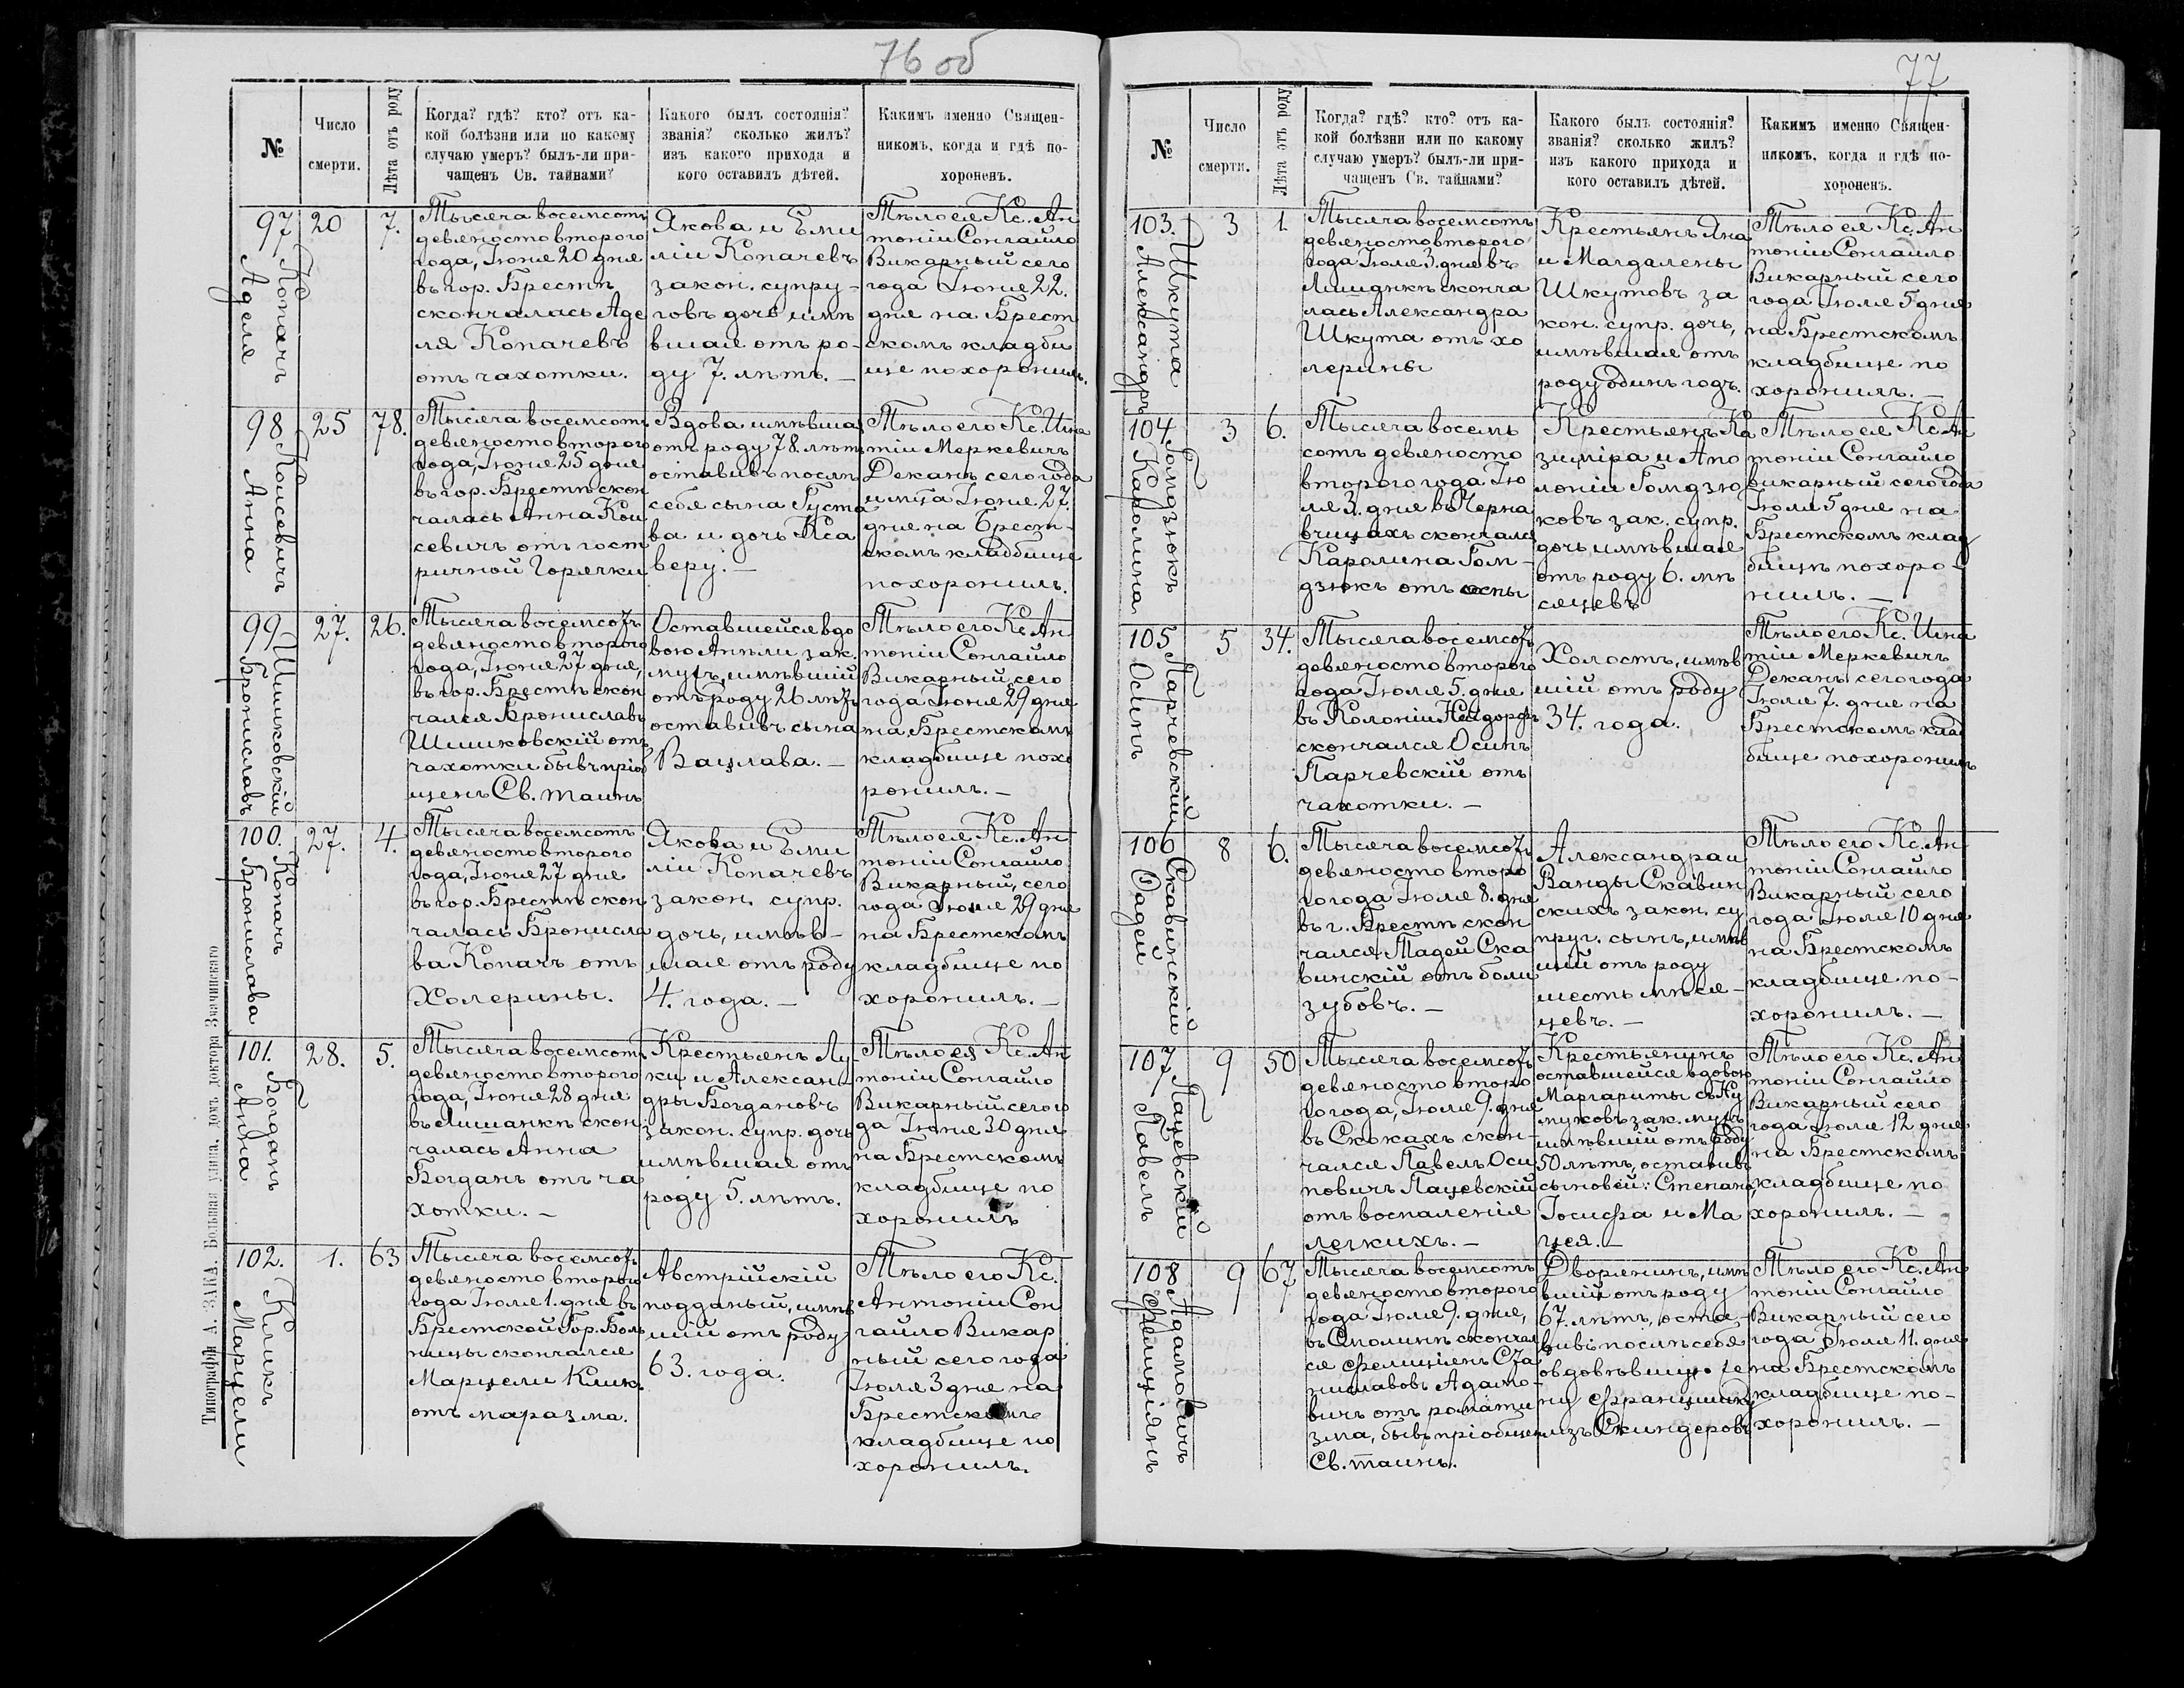 76 об
№
Число
смерти.
Лѣта отъ роду
Когда? гдѣ? кто? отъ ка-
кой болѣзни или по какому
случаю умеръ? былъ-ли при-
чащенъ Св. тайнами?
Какого былъ состоянія?
званія? сколько жилъ?
изъ какого прихода и
кого оставилъ дѣтей.
Какимъ именно Священ-
никомъ, когда и гдѣ по-
хороненъ.
97
Копачъ
Аделя
20
7.
Тысяча восемсотъ
девяносто второго
года, Іюня 20 дня
въ гор. Брестѣ
скончалась Аде
ля Копачевъ
отъ чахотки.
Якова и Еми
ліи Копачевъ
закон. супру-
говъ дочь имѣ
вшая отъ ро-
ду 7. лѣтъ. —
Тѣло ея Кс. Ан
тоній Сонгайло
Викарный сего
года Іюня 22.
дня на Брест
скомъ кладби
ще похоронилъ.
98
Концевичъ
Анна
25
78.
Тысяча восемсотъ
девяносто второго
года, Іюня 25 дня
въ гор. Брестѣ скон
чалась Анна Кон
севичъ отъ гост
ричной горячки
Вдова имѣвша
отъ роду 78 лѣтъ
оставивъ послѣ
себя сына Густа
ва и дочь Кса
веру. —
Тѣло его Кс. Игна
тій Меркевичъ
Деканъ сего года
и мѣца Іюня 27.
дня на Брест-
скомъ кладбище
похоронилъ.
99
Шишковскій
Брониславъ
27.
26.
Тысяча восемсотъ
девяносто второго
года, Іюня 27 дня,
въ гор. Брестѣ скон
чался Брониславъ
Шишковскій отъ
чахотки бывъ пріоб
щенъ Св. таинъ
Оставшейся вдо
вою Анѣли зак.
мужъ, имѣвшій
отъ роду 26 лѣтъ
оставивъ сына
Вацлава. —
Тѣло его Кс. Ан
тоній Сонгайло
Викарный, сего
года Іюня 29 дня
на Брестскомъ
кладбище похо
ронилъ. —
100.
Копачъ
Бронислава
27.
4.
Тысяча восемсотъ
девяносто второго
года, Іюня 27 дня
въ гор. Брестѣ скон
чалась Бронисла
ва Копачъ отъ
Холерины.
Якова и Еми
ліи Копачевъ
закон. супр.
дочь, имѣв-
шая отъ роду
4. года. —
Тѣло ея Кс. Ан
тоній Сонгайло
Викарный, сего
года Іюня 29 дня
на Брестскомъ
кладбище по
хоронилъ. —
101.
Богданъ
Анна
28.
5.
Тысяча восемсотъ
девяносто второго
года, Іюня 28 дня
въ Лишанкѣ скон
чалась Анна
Богданъ отъ ча
хотки. —
Крестьянъ Лу-
ки и Алексан-
дры Богдановъ
закон. супр. дочь
имѣвшая отъ
роду 5. лѣтъ.
Тѣло ея Кс. Ан
тоній Сонгайло
Викарный сего го
да Іюня 30 дня
на Брестскомъ
кладбище по
хоронилъ
102.
Кликъ
Марцели
1.
63
Тысяча восемсотъ
девяносто второго
года Іюля 1. дня въ
Брестской Гор. Боль
ницы скончался
Марцели Кликъ
отъ маразма.
Австрійскій
подданый, имѣв
шій отъ роду
63. года.
Тѣло его Кс.
Антоній Сон
гайло Викар
ный сего года
Іюля 3 дня на
Брестскомъ
кладбище по
хоронилъ.
Типографія А. ЗАКА, Большая улица, домъ доктора Значинскаго
77
№
Число
смерти.
Лѣта отъ роду
Когда? гдѣ? кто? отъ ка-
кой болѣзни или по какому
случаю умеръ? былъ-ли при-
чащенъ Св. тайнами?
Какого былъ состоянія?
званія? сколько жилъ?
изъ какого прихода и
кого оставилъ дѣтей.
Какимъ именно Священ-
никомъ, когда и гдѣ по-
хороненъ.
103.
Шкута
Александръ
3
1.
Тысяча восемсотъ
девяносто второго
года Іюля 3. дня въ
Лишанкѣ сконча
лась Александра
Шкута отъ хо
лерины
Крестьянъ Яна
и Магдалены
Шкутовъ за
кон. супр. дочь,
имѣвшая отъ
роду одинъ годъ.
Тѣло ея Кс. Ан
тоній Сонгайло
Викарный сего
года Іюля 5 дня
на Брестскомъ
кладбище по
хоронилъ. —
104
Гомдзюкъ
Каролина
3
6.
Тысяча восемь
сотъ девяносто
второго года Ію
ля 3. дня въ Черна
вчицахъ скончался
Каролина Гом-
дзюкъ отъ оспы
Крестьянъ Ка
зиміра и Апо
лоніи Гомдзю
ковъ зак. супр.
дочь имѣвшая
отъ роду 6. мѣ
сяцевъ
Тѣло ея Кс. Ан
тоній Сонгайло
викарный сего года
Іюля 5 дня на
Брестскомъ клад
бищѣ похоро-
нилъ. —
105
Парчевскій
Осипъ
5
34.
Тысяча восемсотъ
девяносто второго
года Іюля 5. дня
въ Колоніи Нейдорфъ
скончался Осипъ
Парчевскій отъ
чахотки. —
Холостъ, имѣв
шій отъ роду
34. года.
Тѣло его Кс. Игна
тій Меркевичъ
Деканъ сего года
Іюля 7. дня на
Брестскомъ клад
бище похоронилъ
106
Скавинскій
Фадей
8
6.
Тысяча восемсотъ
девяносто второ
го года Іюля 8. дня
въ г. Брестѣ скон
чался Тадей Ска
винскій отъ боли
зубовъ. —
Александра и
Ванды Скавин
скихъ закон. су
пруг. сынъ, имѣв
шій отъ роду
шесть мѣся-
цевъ. —
Тѣло его Кс. Ан
тоній Сонгайло
Викарный сего
года Іюля 10 дня
на Брестскомъ
кладбище по-
хоронилъ. —
107
Пацевскій
Павелъ
9
50
Тысяча восемсотъ
девяносто второ
го года, Іюля 9. дня
въ Скокахъ скон-
чался Павелъ Оси
повичъ Пацевскій
отъ воспаленія
легкихъ. —
Крестьянинъ
оставшейся вдовою
Маргариты съ
зак. мужъ
имѣвшій отъ роду
50 лѣтъ, оставивъ
сыновей: Степана,
Іосифа и Ма
цея. —
Тѣло его Кс. Ан
тоній Сонгайло
Викарный сего
года Іюля 12 дня
на Брестскомъ
кладбище по
хоронилъ. —
108
Адамовичъ
Фелиціянъ
9
67
Тысяча восемсотъ
девяносто второго
года Іюля 9. дня,
въ скончал
ся Фелиціянъ Ста
ниславовъ Адамо-
вичъ отъ
зма, бывъ пріобщен
Св. таинъ.
Дворянинъ, имѣ
вшій отъ роду
67. лѣтъ, оста-
вивъ послѣ себя
овдовѣвшую же
ну Францишку
изъ Скиндеровъ
Тѣло его Кс. Ан
тоній Сонгайло
Викарный сего
года Іюля 11. дня
на Брестскомъ
кладбище по-
хоронилъ. —